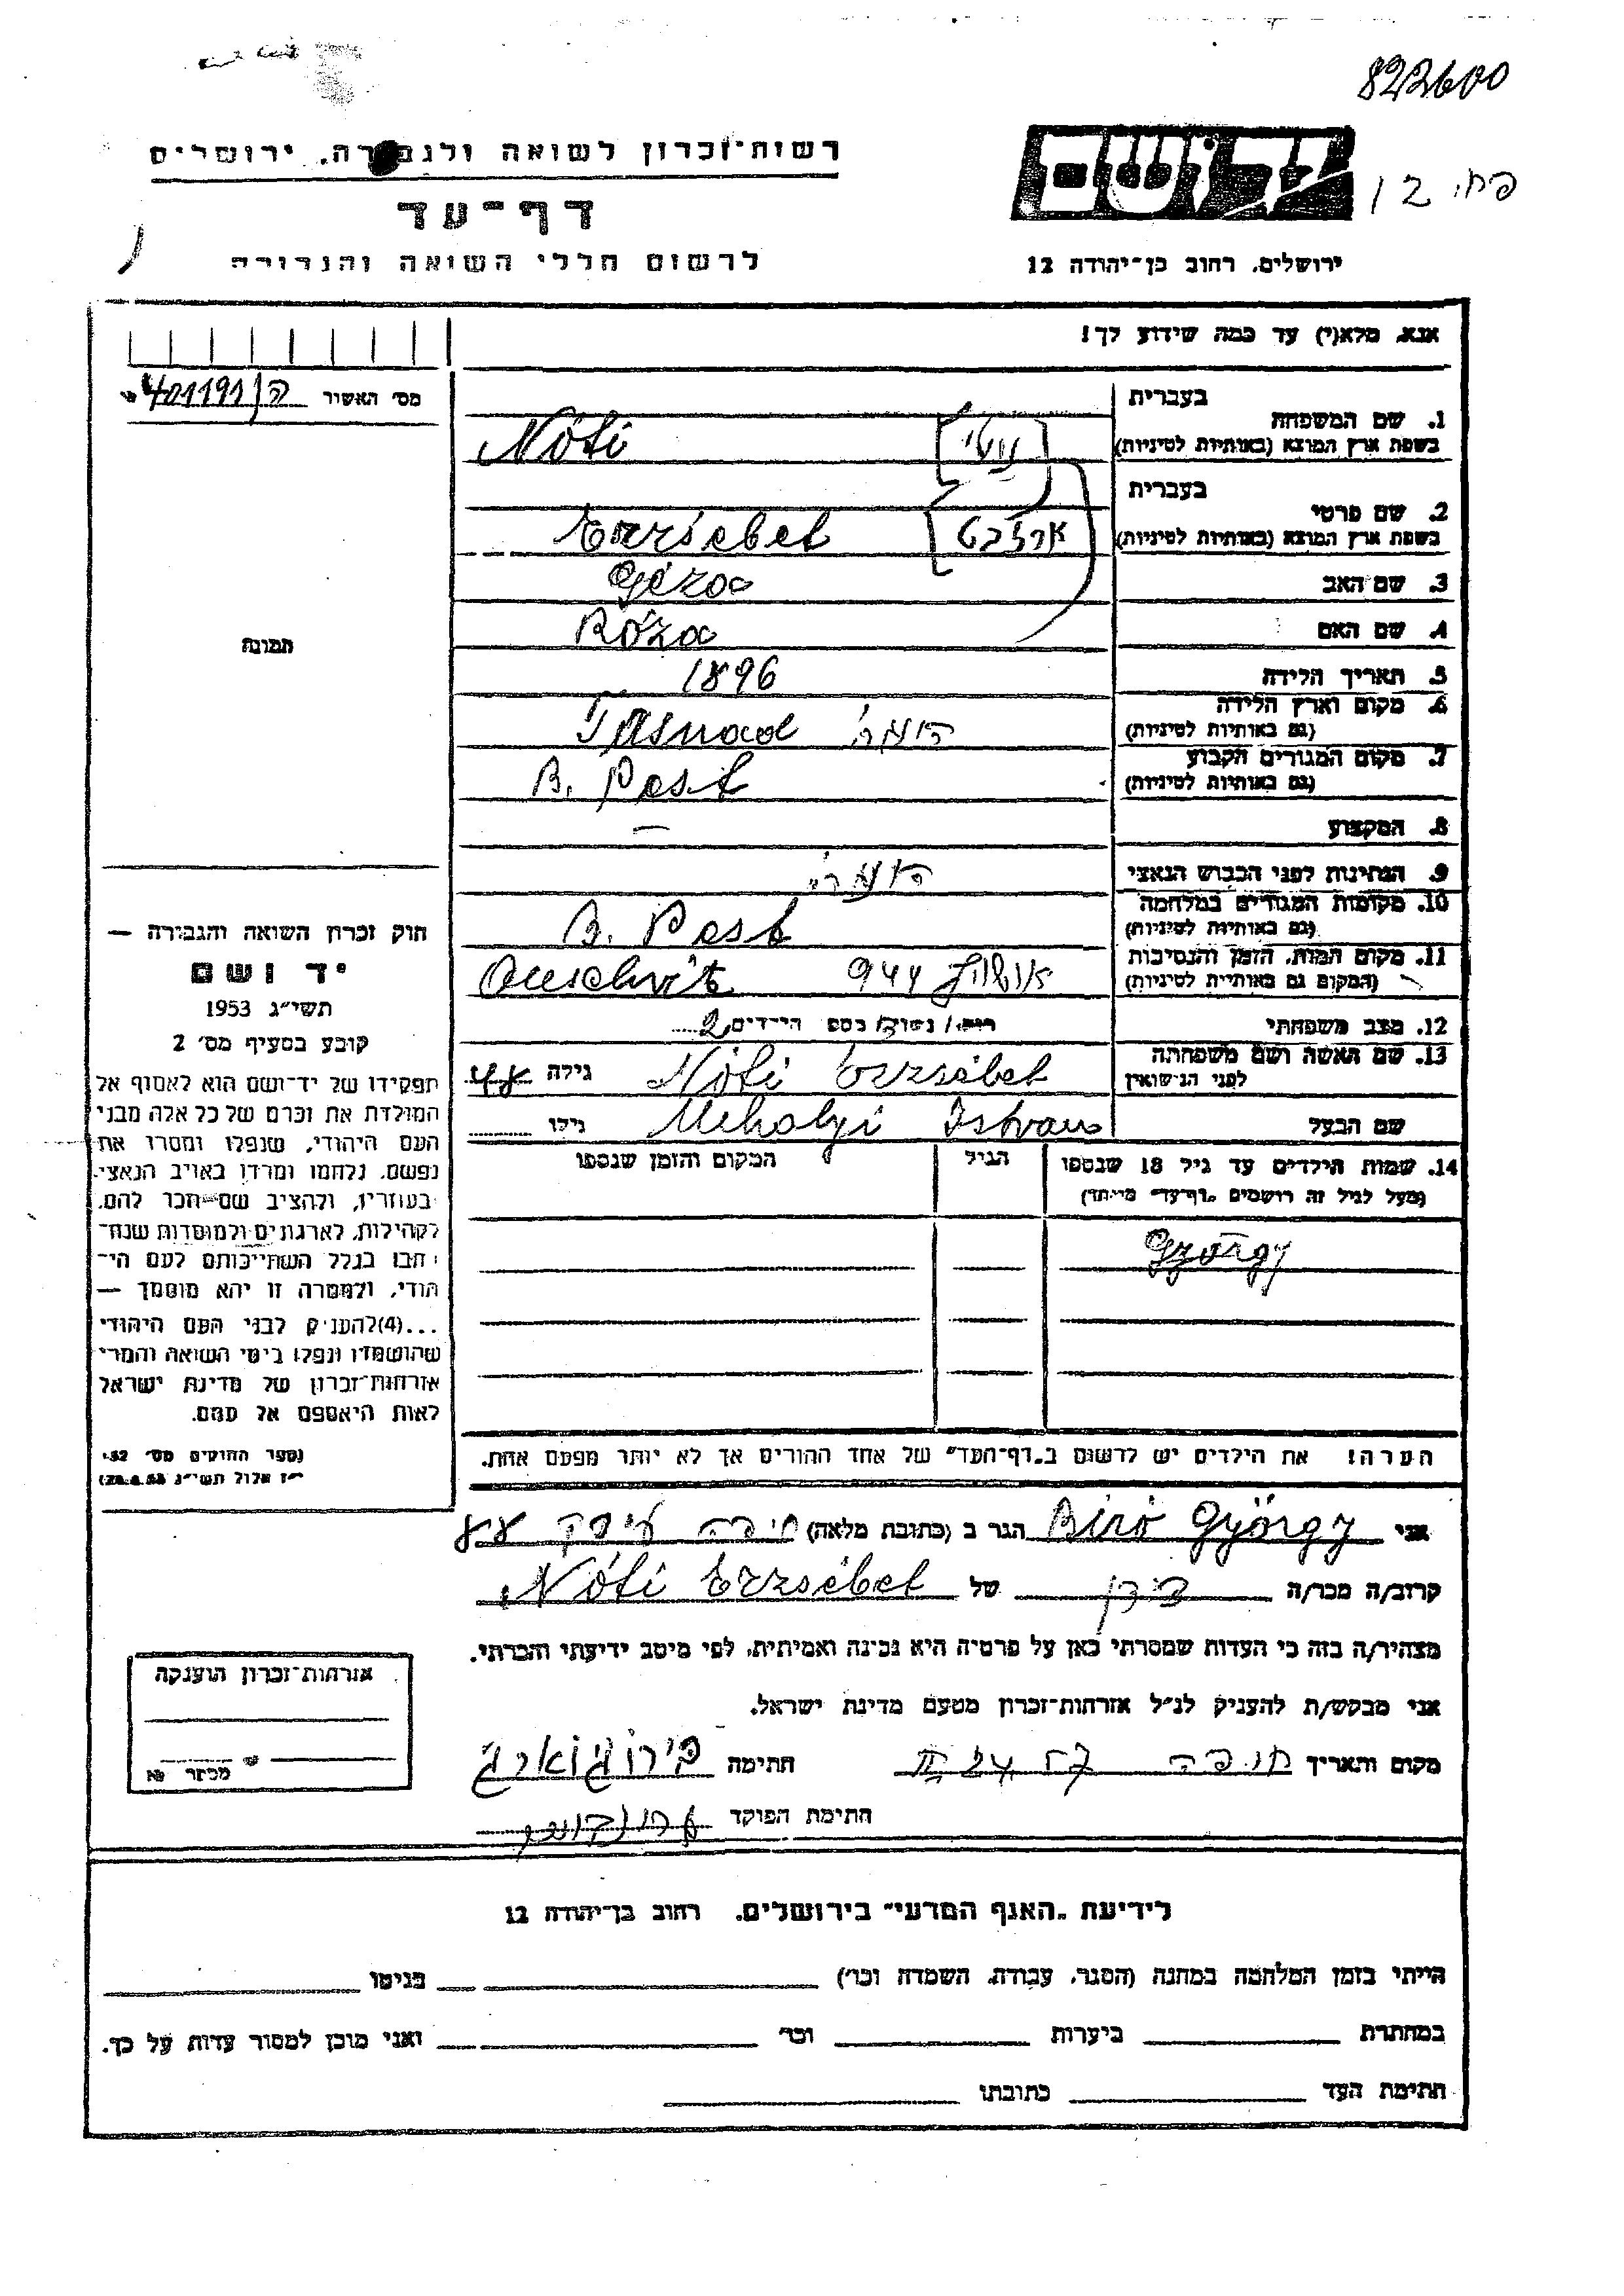 822600
רשות־זכרון לשואה ולגבורה, ירושלים
יד ושם
דף־עד
לרשום חללי השואה והגבורה
ירושלים, רחוב בן־יהודה 12
אנא, מלא(י) עד כמה שידוע לך!
מס׳ האשור
בעברית
1. שם המשפחה
בשפת ארץ המוצא (באותיות לטיניות)
Nóti [נוטי]
בעברית
2. שם פרטי
בשפת ארץ המוצא (באותיות לטיניות)
Erzsébet [ארז'בט]
3. שם האב Géza
4. שם האם Róza
תמונה
5. תאריך הלידה 1896
6. מקום וארץ הלידה
(גם באותיות לטיניות)
Tasnad
7. מקום המגורים הקבוע
(גם באותיות לטיניות)
B. Pest
8. המקצוע —
9. הנתינות לפני הכבוש הנאצי
10. מקומות המגורים במלחמה
(גם באותיות לטיניות)
B. Pest
11. מקום המות, הזמן והנסיבות
(המקום גם באותיות לטיניות)
אושויץ 944 Auschvitz
12. מצב משפחתי
מספר הילדים 2
13. שם האשה ושם משפחתה
לפני הנישואין
Nóti Erzsébet גילה 48
שם הבעל Mihalyi Istvan גילו
14. שמות הילדים עד גיל 18 שנספו
(מעל לגיל זה רושמים „דף־עד״ מיוחד)
הגיל
המקום והזמן שנספו
György
חוק זכרון השואה והגבורה —
יד ושם
תשי״ג 1953
קובע בסעיף מס׳ 2
תפקידו של יד־ושם הוא לאסוף אל
המולדת את זכרם של כל אלה מבני
העם היהודי, שנפלו ומסרו את
נפשם, נלחמו ומרדו באויב הנאצי
ובעוזריו, ולהציב שם־וזכר להם,
לקהילות, לארגונים ולמוסדות שנח־
רבו בגלל השתייכותם לעם הי־
הודי, ולמטרה זו יהא מוסמך —
...(4) להעניק לבני העם היהודי
שהושמדו ונפלו בימי השואה והמרי
אזרחות־זכרון של מדינת ישראל
לאות היאספם אל עמם.
(ספר החוקים מס׳ 132
י״ז אלול תשי״ג 28.8.53)
הערה! את הילדים יש לרשום ב„דף־העד״ של אחד ההורים אך לא יותר מפעם אחת.
אני Biró György הגר ב (כתובת מלאה) חיפה
קרוב/ה מכר/ה של Nóti Erzsébet
מצהיר/ה בזה כי העדות שמסרתי כאן על פרטיה היא נכונה ואמיתית, לפי מיטב ידיעתי והכרתי.
אני מבקש/ת להעניק לנ״ל אזרחות־זכרון מטעם מדינת ישראל.
מקום ותאריך חיפה חתימה
חתימת הפוקד
אזרחות־זכרון הוענקה
לידיעת „האגף המדעי״ בירושלים, רחוב בן־יהודה 12
הייתי בזמן המלחמה במחנה (הסגר, עבודה, השמדה וכו׳) בגיטו
במחתרת ביערות וכו׳ ואני מוכן למסור עדות על כך.
חתימת העד כתובתו